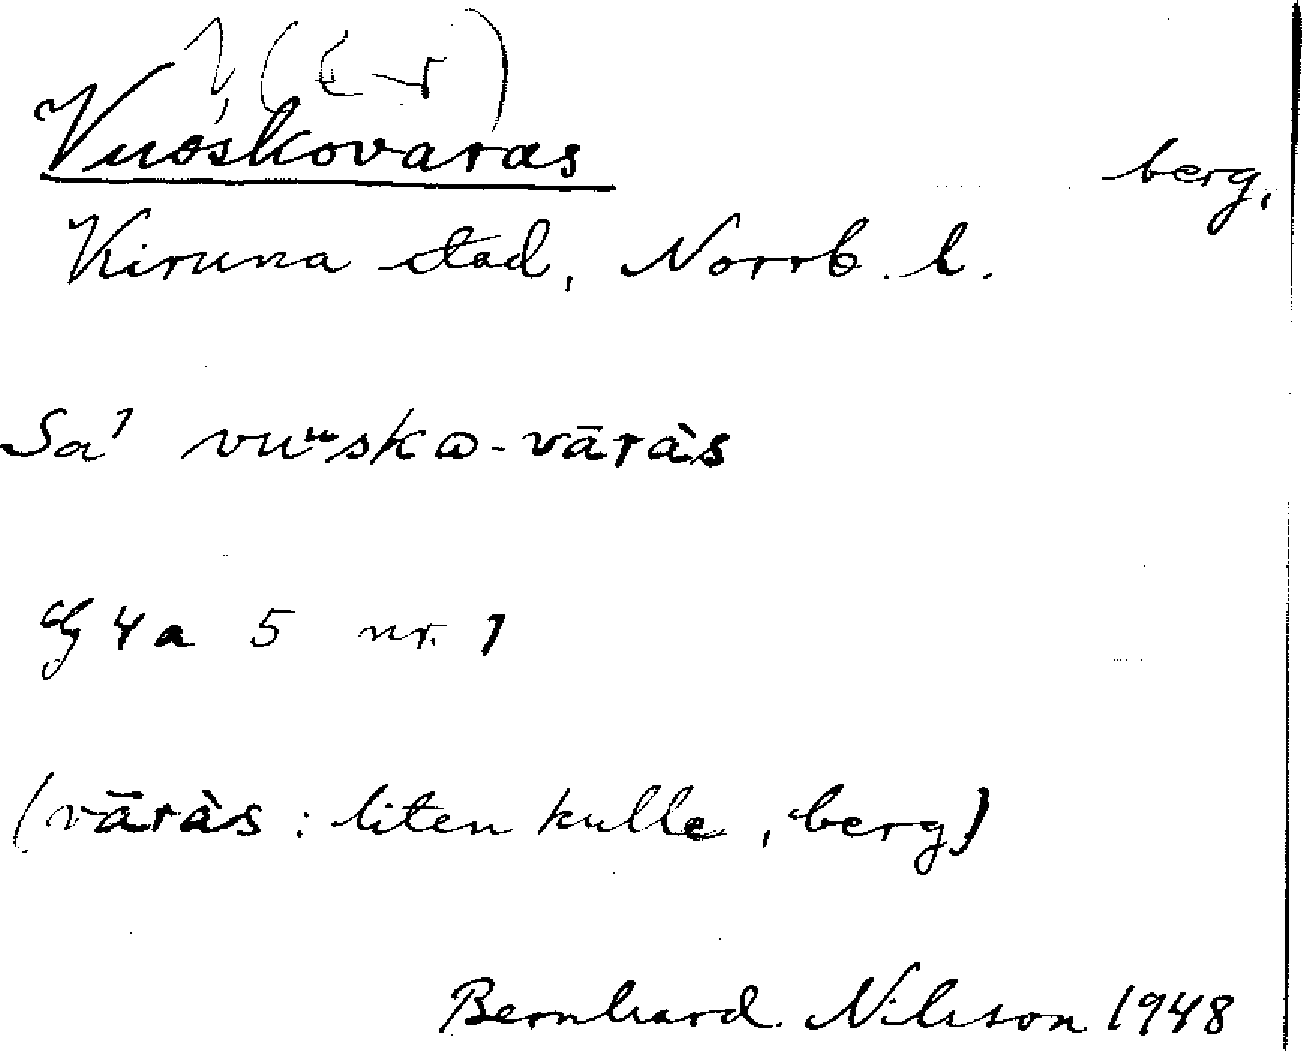 Vuoskovaras berg,
Kiruna stad, Norrb. l.
Sa' vuᵘsko-vāràs
4a 5 nr. 1
(vāràs: liten kulle, berg)
Bernhard Nilsson 1948